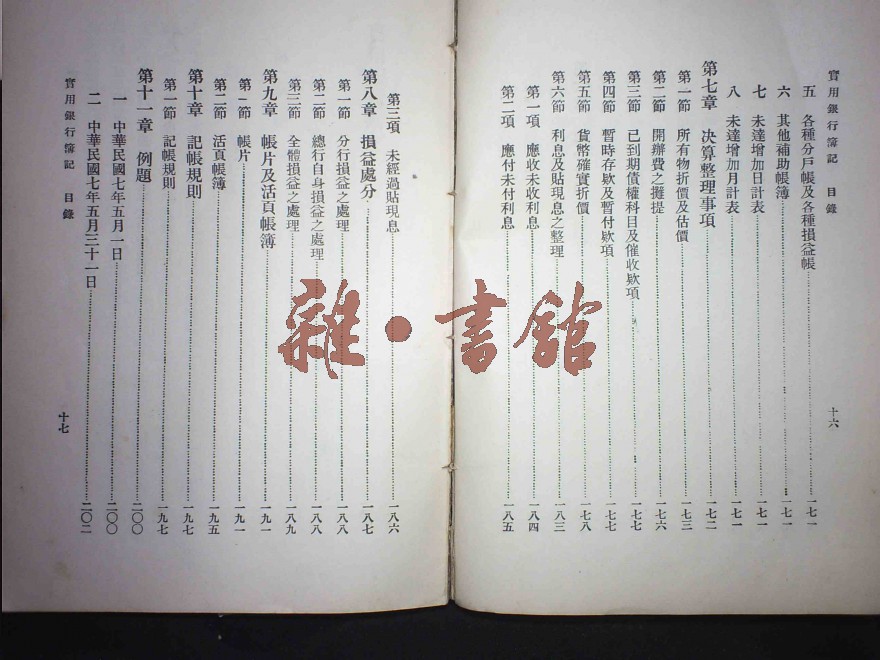 實用銀行簿記 目錄
十六
五 各種分戶帳及各種損益帳 一七一
六 其他補助帳簿 一七一
七 未達增加日計表 一七一
八 未達增加月計表 一七一
第七章 決算整理事項 一七二
第一節 所有物折價及估價 一七三
第二節 開辦費之攤提 一七六
第三節 已到期債權科目及催收欵項 一七七
第四節 暫時存欵及暫付欵項 一七七
第五節 貨幣確實折價 一七八
第六節 利息及貼現息之整理 一八三
第一項 應收未收利息 一八四
第二項 應付未付利息 一八五
第三項 未經過貼現息 一八六
第八章 損益處分 一八七
第一節 分行損益之處理 一八八
第二節 總行自身損益之處理 一八八
第三節 全體損益之處理 一八九
第九章 帳片及活頁帳簿 一九一
第一節 帳片 一九一
第二節 活頁帳簿 一九五
第十章 記帳規則 一九七
第一節 記帳規則 一九七
第十一章 例題 二〇〇
一 中華民國七年五月一日 二〇〇
二 中華民國七年五月三十一日 二〇二
實用銀行簿記 目錄
十七
雜·書館